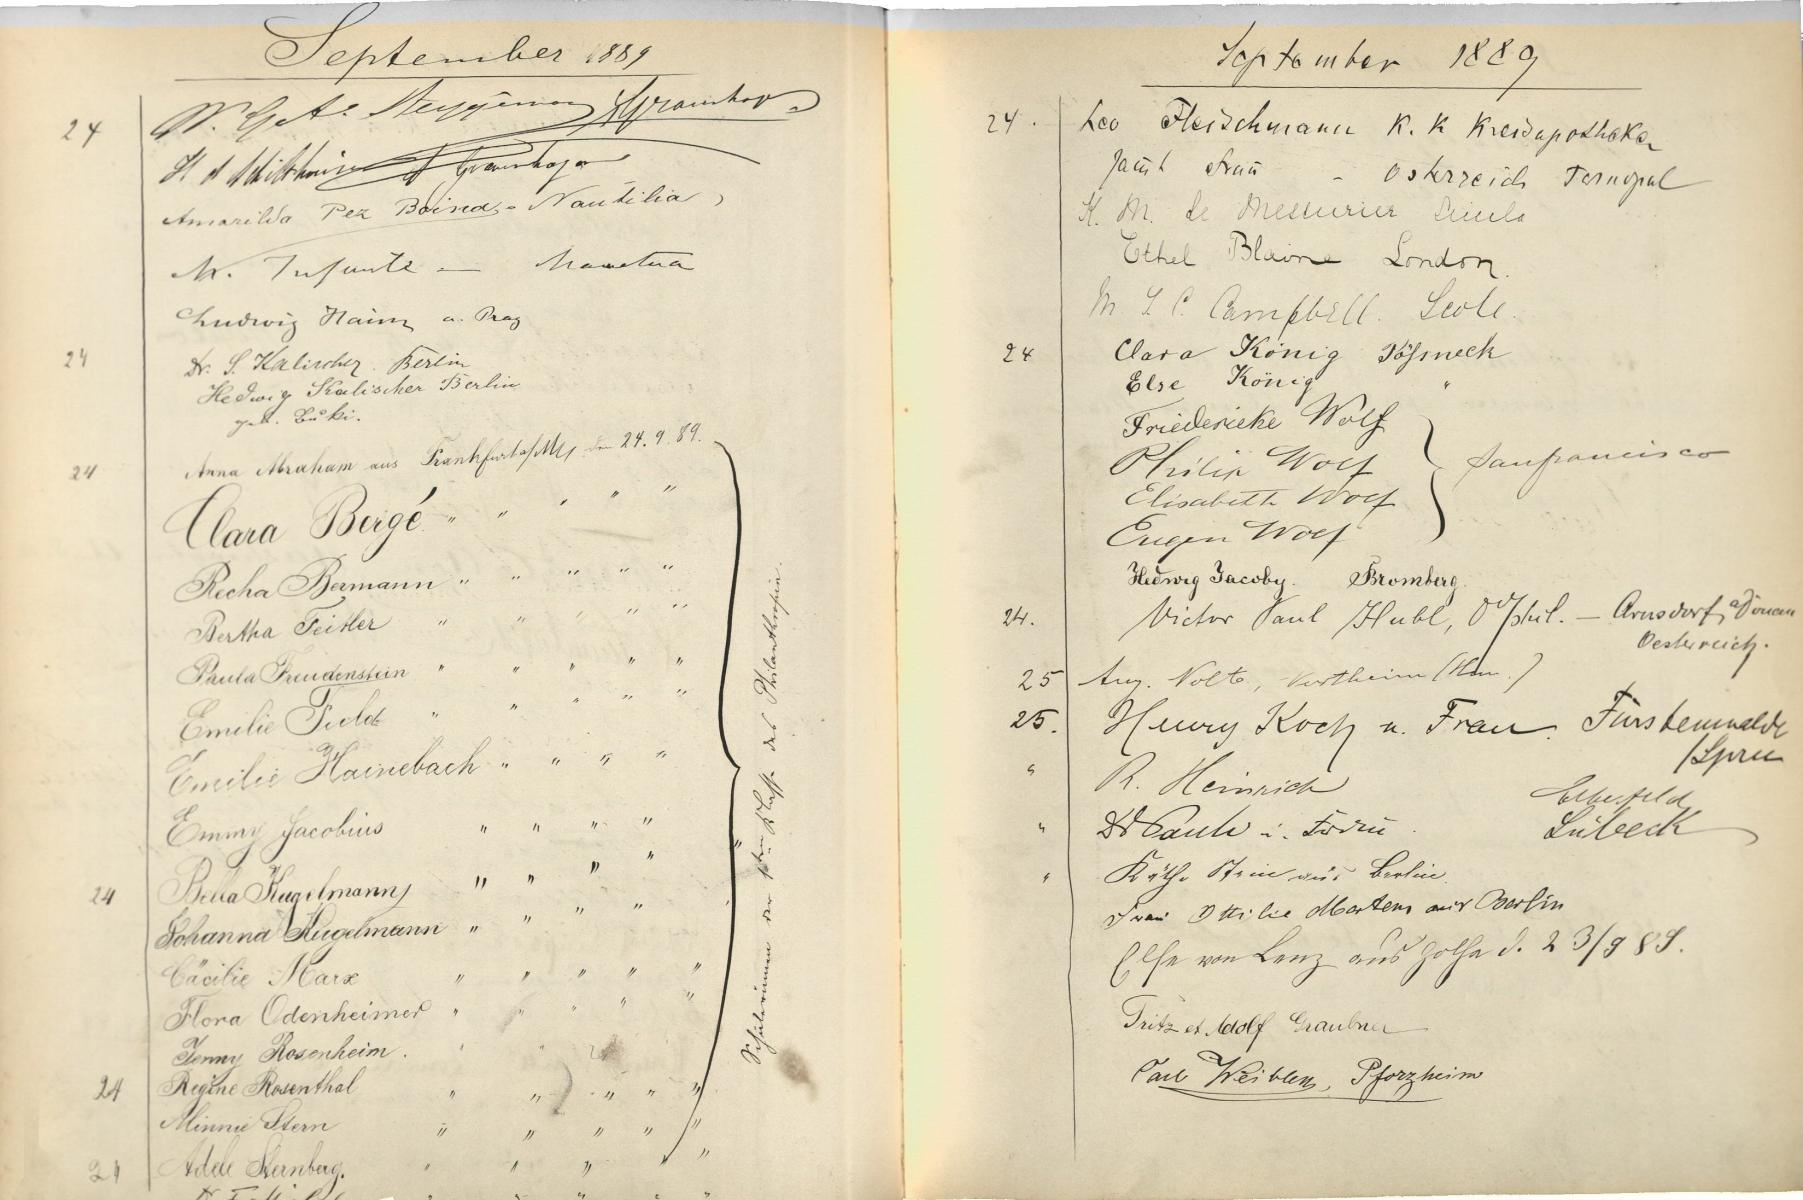 September 1889
24
Amarilda Pez Boind - Nautilia
Ludwig Haim a. Prag
24 Dr. S. Kalischer. Berlin
Hedwig Kalischer Berlin
24 Anna Abraham aus Frankfurt a/M den 24.9.89.
Clara Bergé " " " " "
Recha Bermann " " " " "
Bertha Feitler " " " " "
Paula Freudenstein " " " " "
Emilie Fuld " " " " "
Emilie Hainebach " " " "
Emmy Jacobius " " " "
24 Bella Kugelmann " " " "
Johanna Kugelmann " " " "
Cäcilie Marx " " " " "
Flora Odenheimer " " " " "
Jenny Rosenheim.
24 Regine Rosenthal " " " " "
Minnie Stern " " " " "
24 Adele Sternberg. " " " " "
Schülerinnen der Klasse des Philanthropin.
September 1889
24. Leo Fleischmann K. K Kreisapotheker
samt Frau - Osterreich Tarnopol
K. M. Le Messurier
Ethel Blaine London.
M. L C. Campbell.
24 Clara König Pößneck
Else König "
Friedericke Wolf
Philip Wolf
Sanfrancisco
Elisabeth Wolf
Eugen Wolf
Hedwig Jacoby. Bromberg.
24. Victor Paul Hubl, phil. - Arnsdorf a/Donau
Oesterreich.
25 Aug. Nolte,
25. Henry Koch u. Frau. Fürstenwalde
/Spree
" R. Heinrich Elberfeld
" Lübeck
" Käthe Stein aus Berlin.
Frau Ottilie Martens aus Berlin
Else von Lenz aus Gotha d. 23/9 89.
Fritz et Adolf Graubner
Carl Weiblen, Pforzheim